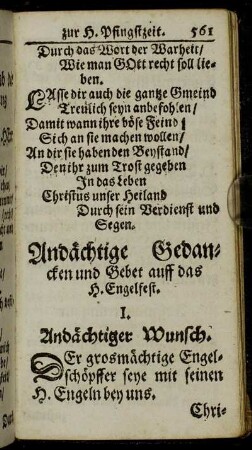 zur H. Pfingstzeit. 561
Durch das Wort der Warheit/
Wie man GOtt recht soll lie-
ben.
LAsse dir auch die gantze Gmeind
Treulich seyn anbefohlen/
Damit wann ihre böse Feind
Sich an sie machen wollen/
An dir sie haben den Beystand/
Den ihr zum Trost gegeben
In das Leben
Christus unser Heiland
Durch sein Verdienst und
Segen.
Andächtige Gedan-
cken und Gebet auff das
H. Engelfest.
I.
Andächtiger Wunsch.
DEr grosmächtige Engel-
schöpffer seye mit seinen
H. Engeln bey uns.
Chri-